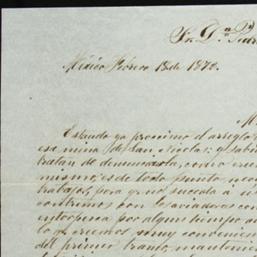 Sr. Dn. Pedr
México Febrero 18 de 1870.
M
Estando ya proximo el arreglo
esa mina de San Nicolas; y sabi
tratan de denunciarla, como crea
mismo, es de todo punto nec
trabajos, para que no suceda á
contremos con los aviadores con
entorpesca por algun tiempo an
lo que creemos muy convenien
del primer tramo, mantenien